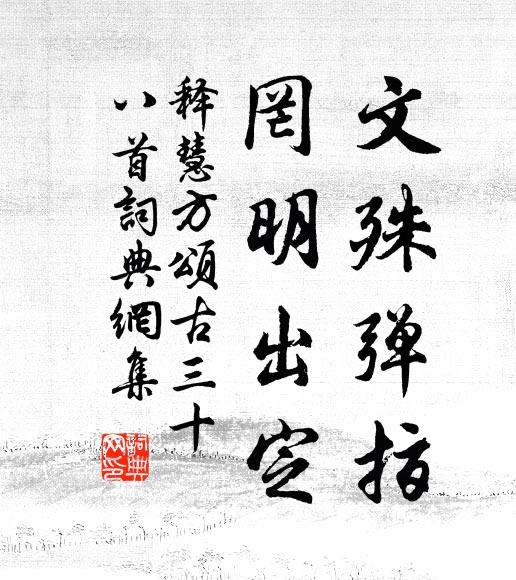 文殊弹指
罔明出定
释慧方頌古三十
八首詞典網集
詞典网印